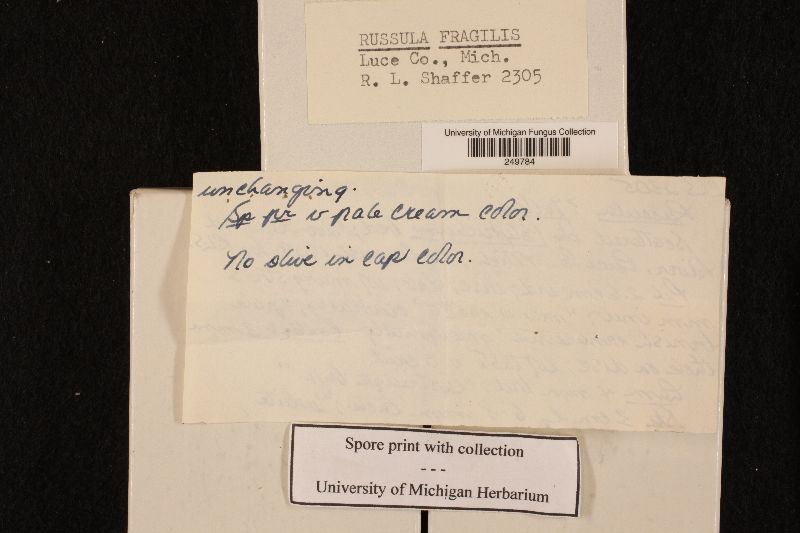 RUSSULA FRAGILIS
Luce Co., Mich.
R. L. Shaffer 2305
University of Michigan Fungus Collection
249784
unchanging.
Sp pr v pale cream color.
No olive in cap color.
Spore print with collection
- - -
University of Michigan Herbarium